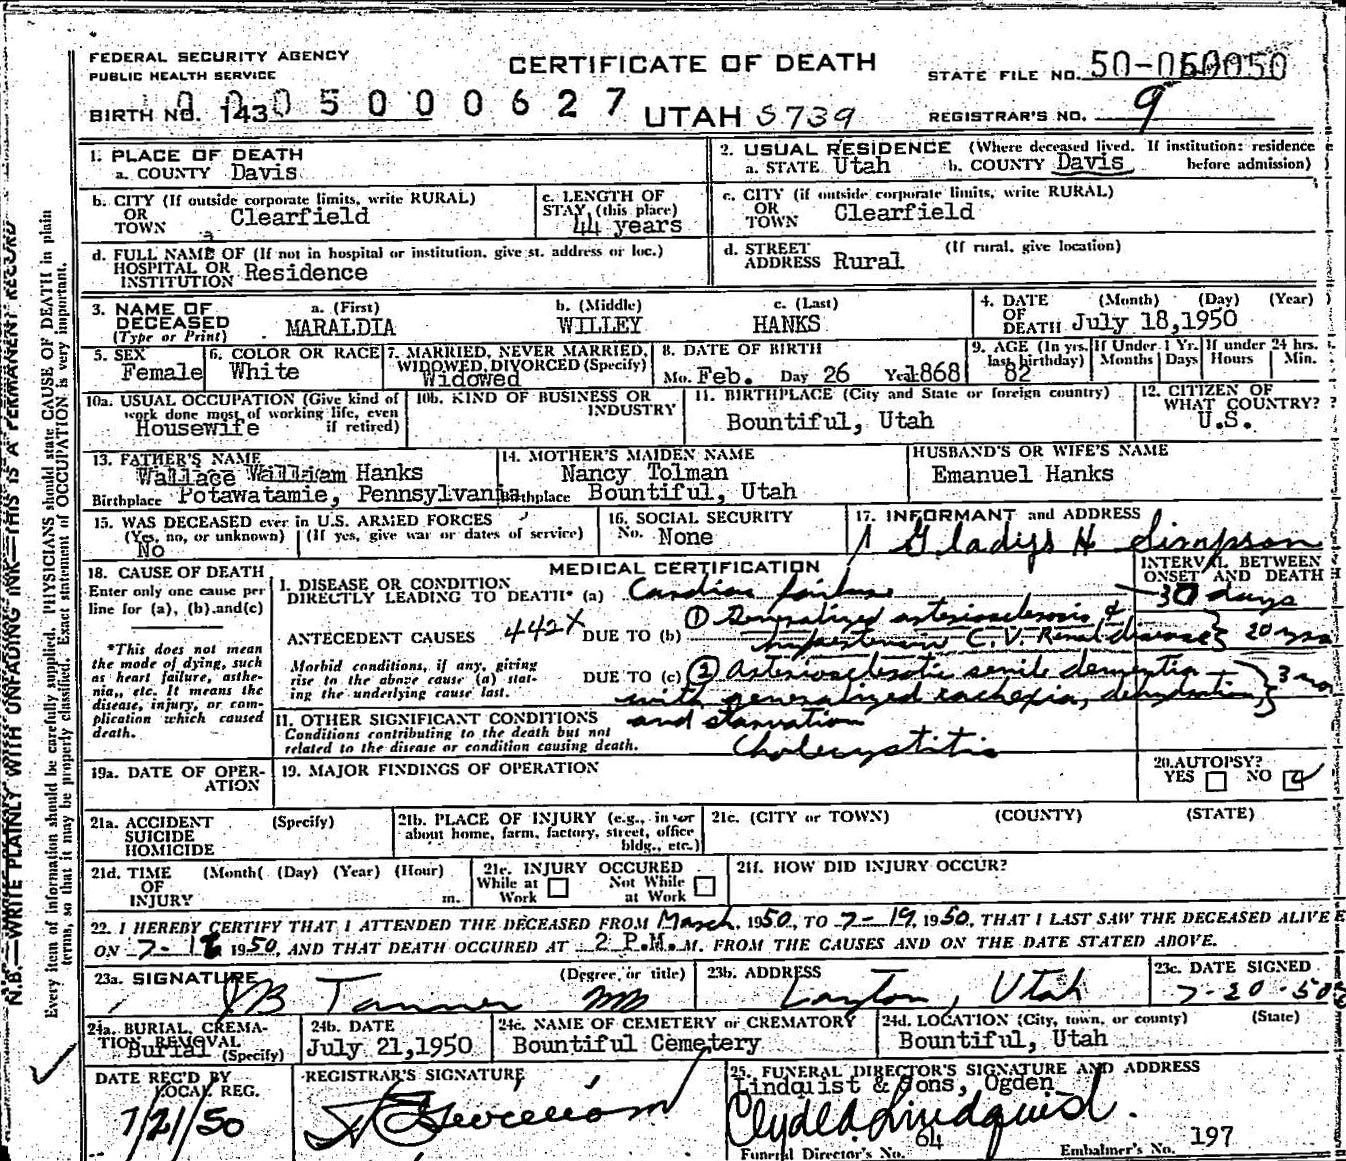 FEDERAL SECURITY AGENCY
PUBLIC HEALTH SERVICE
CERTIFICATE OF DEATH
STATE FILE NO. 50-060050
BIRTH NO. 143 0005000627
UTAH 5739
REGISTRAR'S NO. 9
1. PLACE OF DEATH
a. COUNTY Davis
2. USUAL RESIDENCE (Where deceased lived. If institution: residence before admission)
a. STATE Utah b. COUNTY Davis
b. CITY (If outside corporate limits, write RURAL)
OR TOWN Clearfield
c. LENGTH OF STAY (this place)
44 years
c. CITY (if outside corporate limits, write RURAL)
OR TOWN Clearfield
d. FULL NAME OF (If not in hospital or institution, give st. address or loc.)
HOSPITAL OR INSTITUTION Residence
d. STREET ADDRESS Rural (If rural, give location)
3. NAME OF DECEASED (Type or Print)
a. (First) b. (Middle) c. (Last)
MARALDIA WILLEY HANKS
4. DATE OF DEATH (Month) (Day) (Year)
July 18,1950
5. SEX
Female
6. COLOR OR RACE
White
7. MARRIED, NEVER MARRIED, WIDOWED, DIVORCED (Specify)
Widowed
8. DATE OF BIRTH
Mo. Feb. Day 26 Yr. 1868
9. AGE (In yrs. last birthday)
82
If Under 1 Yr. Months Days
If under 24 hrs. Hours Min.
10a. USUAL OCCUPATION (Give kind of work done most of working life, even if retired)
Housewife
10b. KIND OF BUSINESS OR INDUSTRY
11. BIRTHPLACE (City and State or foreign country)
Bountiful, Utah
12. CITIZEN OF WHAT COUNTRY?
U.S.
13. FATHER'S NAME
Wallace William Hanks
Birthplace Potawatamie, Pennsylvania
14. MOTHER'S MAIDEN NAME
Nancy Tolman
Birthplace Bountiful, Utah
HUSBAND'S OR WIFE'S NAME
Emanuel Hanks
15. WAS DECEASED ever in U.S. ARMED FORCES
(Yes, no, or unknown) (If yes, give war or dates of service)
No
16. SOCIAL SECURITY
No. None
17. INFORMANT and ADDRESS
Gladys H Simpson
MEDICAL CERTIFICATION
INTERVAL BETWEEN ONSET AND DEATH
18. CAUSE OF DEATH
Enter only one cause per line for (a), (b) and (c)
*This does not mean the mode of dying, such as heart failure, asthenia, etc. It means the disease, injury, or complication which caused death.
I. DISEASE OR CONDITION DIRECTLY LEADING TO DEATH* (a) Cardiac failure 30 days
ANTECEDENT CAUSES 442X DUE TO (b) ① Generalized arteriosclerosis & hypertensive C.V. Renal disease 20 yrs
Morbid conditions, if any, giving rise to the above cause (a) stating the underlying cause last.
DUE TO (c) ② Arteriosclerotic senile dementia with generalized cachexia, dehydration, and starvation 3 mo
II. OTHER SIGNIFICANT CONDITIONS
Conditions contributing to the death but not related to the disease or condition causing death.
Cholecystitis
19a. DATE OF OPERATION
19. MAJOR FINDINGS OF OPERATION
20. AUTOPSY?
YES NO
21a. ACCIDENT SUICIDE HOMICIDE (Specify)
21b. PLACE OF INJURY (e.g., in or about home, farm, factory, street, office bldg., etc.)
21c. (CITY or TOWN) (COUNTY) (STATE)
21d. TIME OF INJURY (Month( (Day) (Year) (Hour) m.
21e. INJURY OCCURED
While at Work Not While at Work
21f. HOW DID INJURY OCCUR?
22. I HEREBY CERTIFY THAT I ATTENDED THE DECEASED FROM March, 1950, TO 7-19, 1950, THAT I LAST SAW THE DECEASED ALIVE
ON 7-18 1950, AND THAT DEATH OCCURED AT 2 P.M. M. FROM THE CAUSES AND ON THE DATE STATED ABOVE.
23a. SIGNATURE (Degree or title)
JB Tanner MD
23b. ADDRESS
Layton, Utah
23c. DATE SIGNED
7-20-50
24a. BURIAL, CREMATION, REMOVAL (Specify)
Burial
24b. DATE
July 21,1950
24c. NAME OF CEMETERY or CREMATORY
Bountiful Cemetery
24d. LOCATION (City, town, or county) (State)
Bountiful, Utah
DATE REC'D BY LOCAL REG.
7/21/50
REGISTRAR'S SIGNATURE
25. FUNERAL DIRECTOR'S SIGNATURE AND ADDRESS
Lindquist & Sons, Ogden
Clyde A Lindquist.
Funeral Director's No. 64
Embalmer's No. 197
N.B.—WRITE PLAINLY WITH UNFADING INK—THIS IS A PERMANENT RECORD
Every item of information should be carefully supplied. PHYSICIANS should state CAUSE OF DEATH in plain
terms, so that it may be properly classified. Exact statement of OCCUPATION is very important.